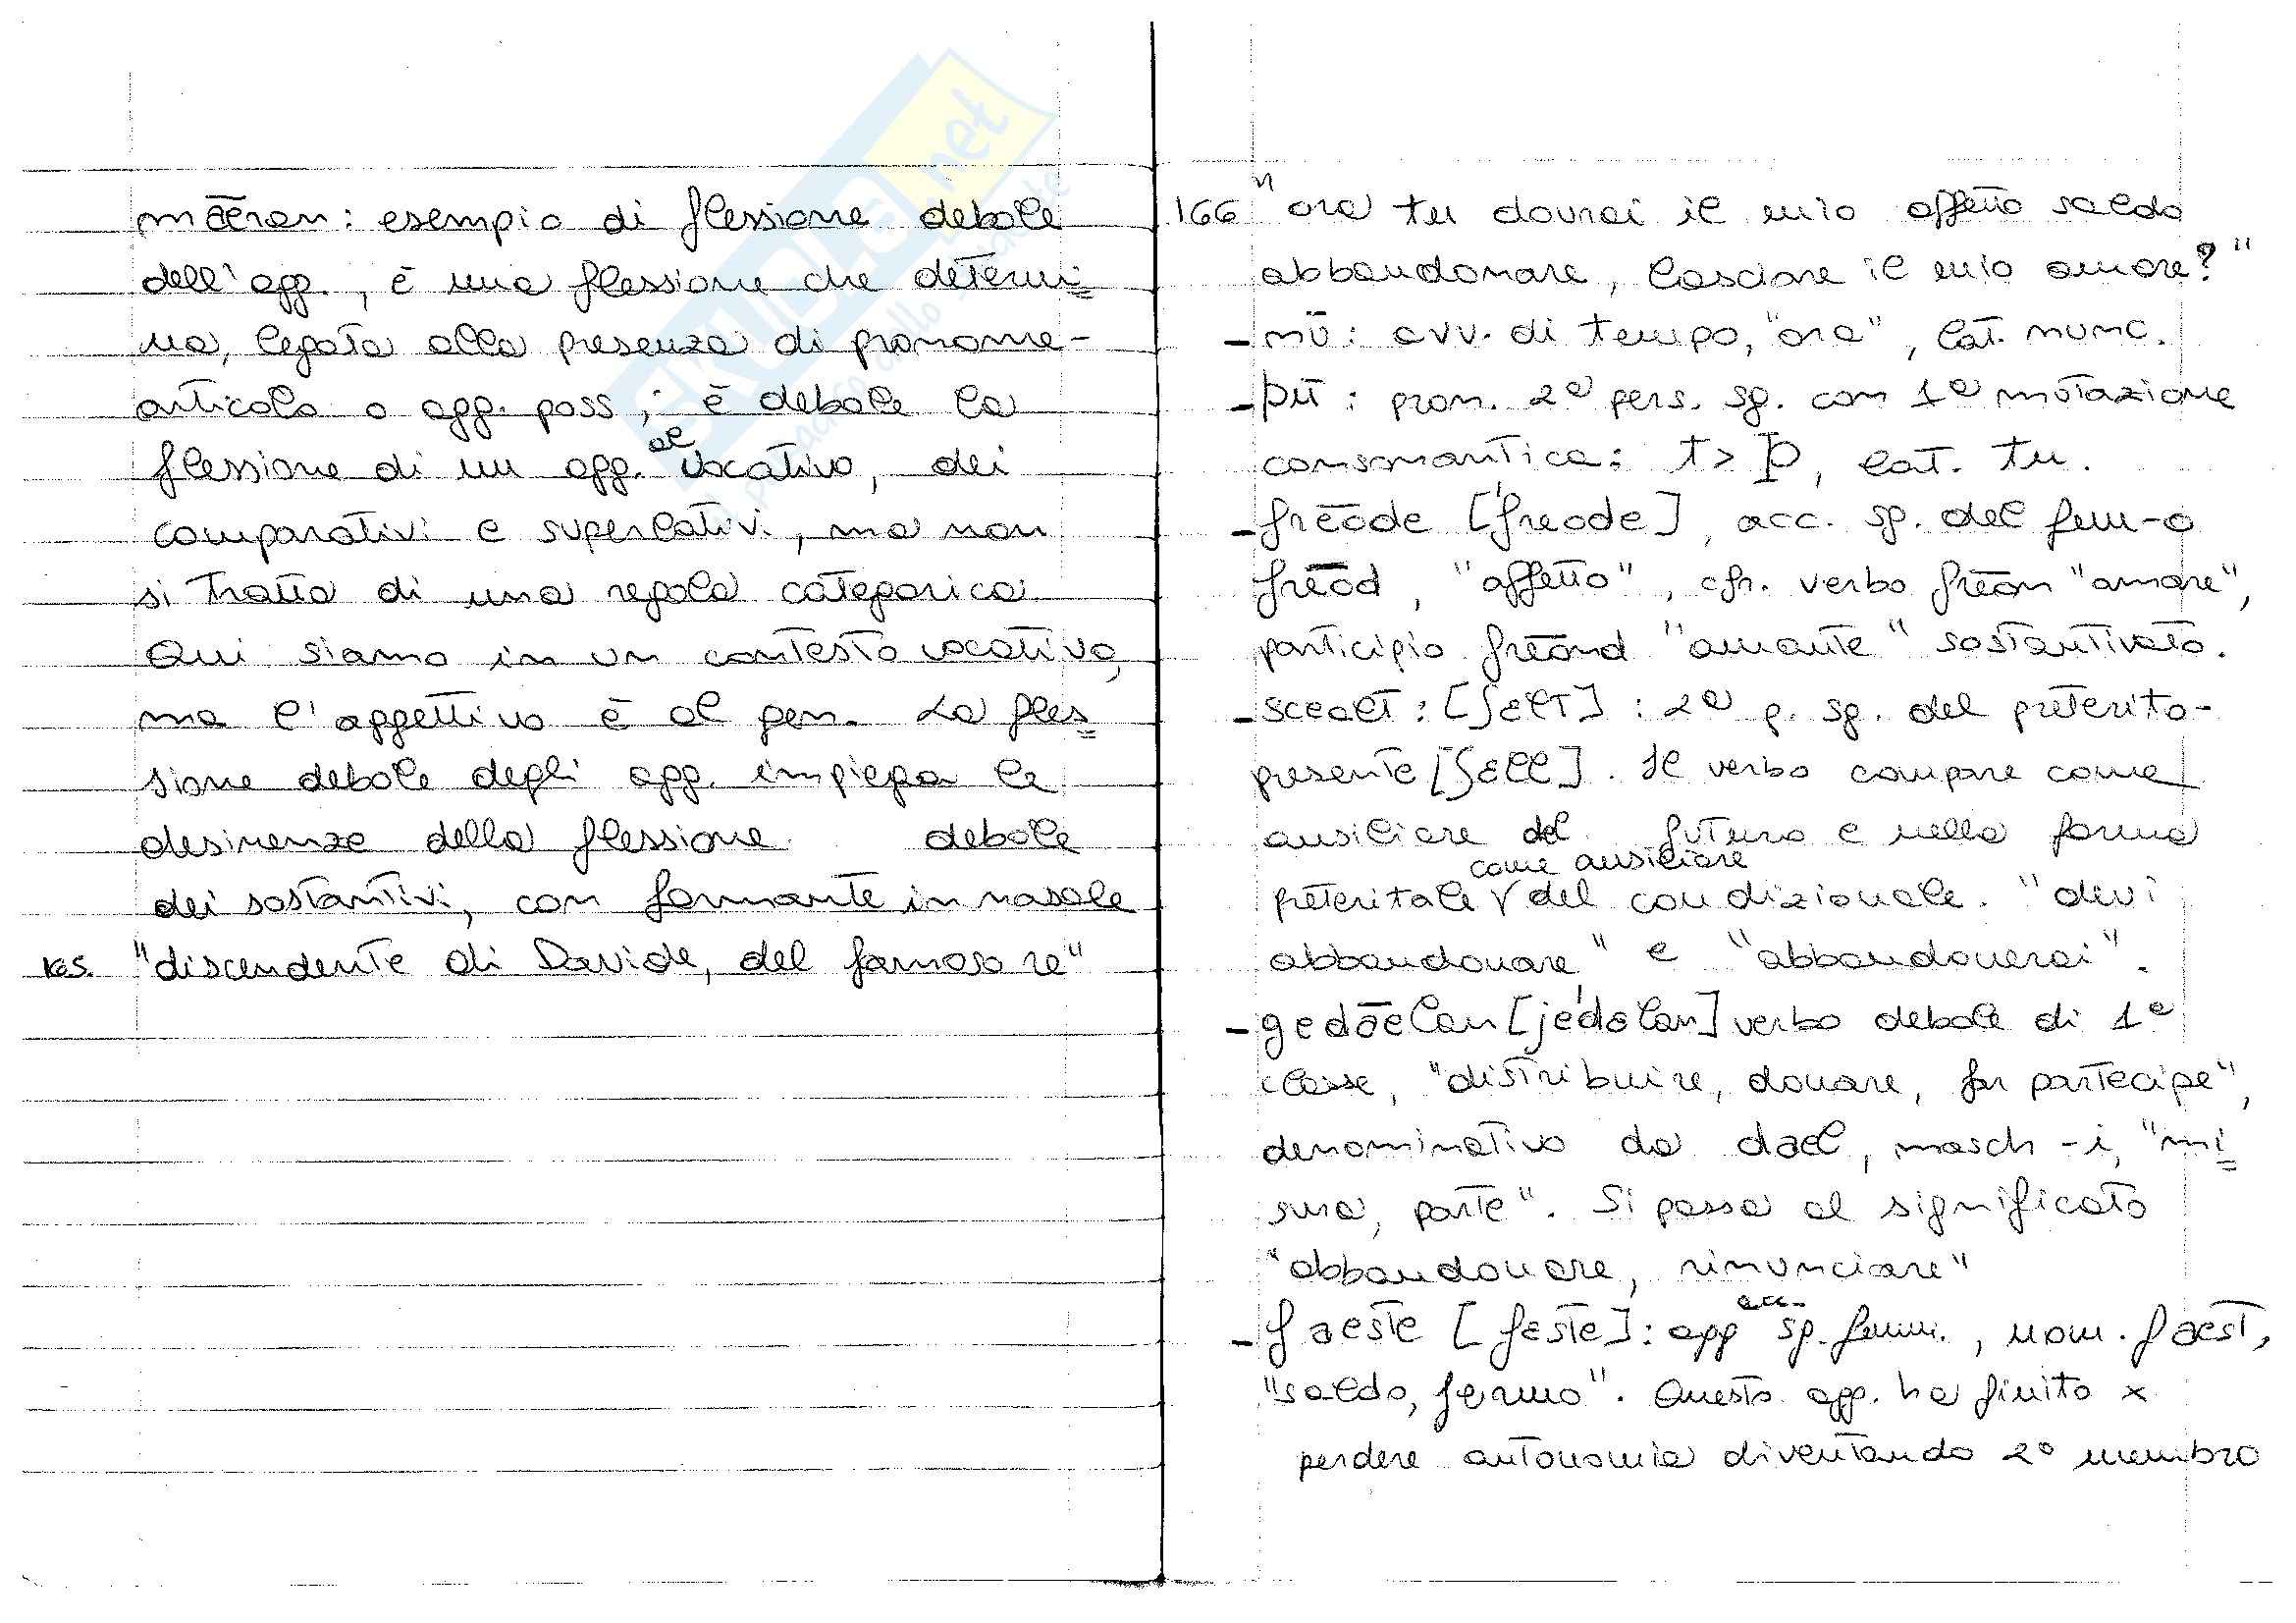 mǣran: esempio di flessione debole
dell'agg., è una flessione che determi=
na, legata alla presenza di pronome-
articolo o agg. poss; è debole la
flessione di un agg. al vocativo, dei
comparativi e superlativi, ma non
si tratta di una regola categorica.
Qui siamo in un contesto vocativo,
ma l'aggettivo è al gen. La fles=
sione debole degli agg. impiega le
desinenze della flessione debole
dei sostantivi, con formante in nasale
165. "discendente di Davide, del famoso re"
166 "ora tu dovrai il mio affetto saldo
abbandonare, lasciare il mio amore?"
- nū: avv. di tempo, "ora", lat. nunc.
- þū: pron. 2ª pers. sg. con 1ª mutazione
consonantica: t > þ, lat. tu.
- frēode ['freode], acc. sg. del fem-o
frēod, "affetto", cfr. verbo frēon "amare",
participio frēond "amante" sostantivato.
- scealt: [ʃɛlt]: 2ª p. sg. del preterito-
presente [ʃɛll]. Il verbo compare come
ausiliare del futuro e nella forma
preteritale come ausiliare del condizionale. "devi
abbandonare" e "abbandonerai".
- gedǣlan [je'dɛlan] verbo debole di 1ª
classe, "distribuire, donare, far partecipe",
denominativo da dael, masch -i, "mi=
sura, parte". Si passa al significato
"abbandonare, rinunciare"
- faeste [fɛste]: agg acc. sg. femm., nom. faest,
"saldo, fermo". Questo agg. ha finito x
perdere autonomia diventando 2° membro
SKUOLA.net